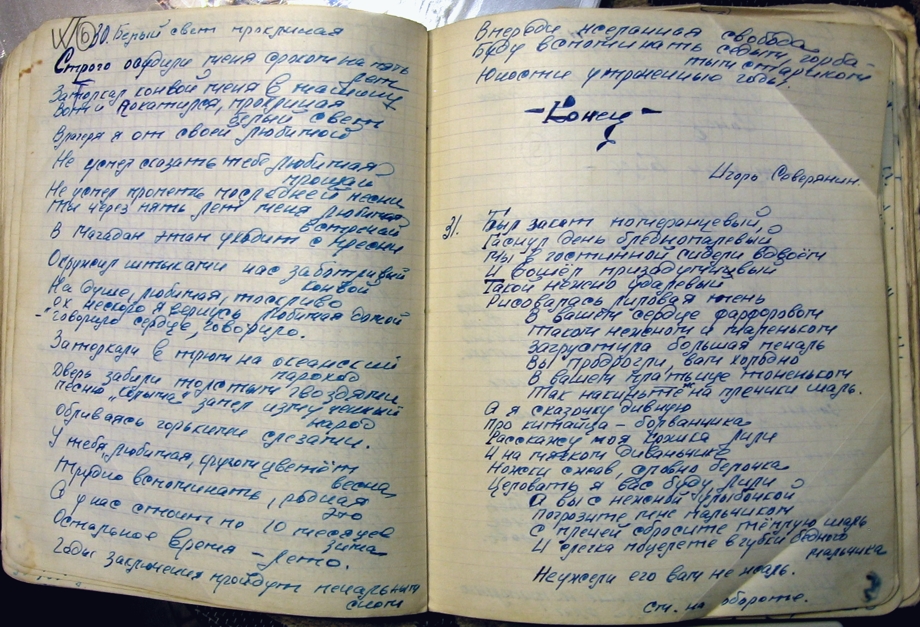 30. Белый свет проклиная
Строго осудили меня сроком на пять
лет
Затолкал конвой меня в машину
Вот и покатился, проклиная
белый свет
В лагеря я от своей любимой
Не успел сказать тебе любимая
прощай
Не успел пропеть последней песни
Ты через пять лет меня любимая
встречай
В Магадан этап уходит с Пресни
Окружил штыками нас заботливый
конвой
На душе, любимая, тоскливо
Ох нескоро я вернусь любимая домой
говорило сердце, говорило.
Затолкали в трюм на океанский
пароход
Дверь забили толстыми гвоздями
песню запел измученный
народ
Обливаясь горькими слезами.
У тебя, любимая, кругом цветёт
весна
Трудно вспоминать, родная
это
А у нас стоит по 10 месяцев
зима
Остальное время – лето.
Годы заключения пройдут печальным
сном
Впереди желанная свобода
Буду вспоминать седым, горба-
тым стариком
Юности утраченные годы.
- Конец -
Игорь Северянин.
31. Был закат померанцевый,
Гаснул день бледнопалевый
Мы в гостинной сидели вдвоём
И вошёл призадумчивый
Такой нежно удалевый
Рисовалась липовая тень
В вашем сердце фарфоровом
Таком нежном и маленьком
Загрустила большая печаль
Вы продрогли, вам холодно
В вашем платьице тоненьком
Так накиньте на плечики шаль.
А я сказочку дивную
про китайца - болванчика
Расскажу моя кошка Лили
И на мягком диванчике
Ножки сжав, словно белочка
Целовать я вас буду Лили
А вы с нежной улыбочкой
Погрозите мне пальчиком
С плечей сбросите тёплую шаль
И слегка поцелуете в губки бедного
мальчика
Неужели его вам не жаль.
См. на обороте.